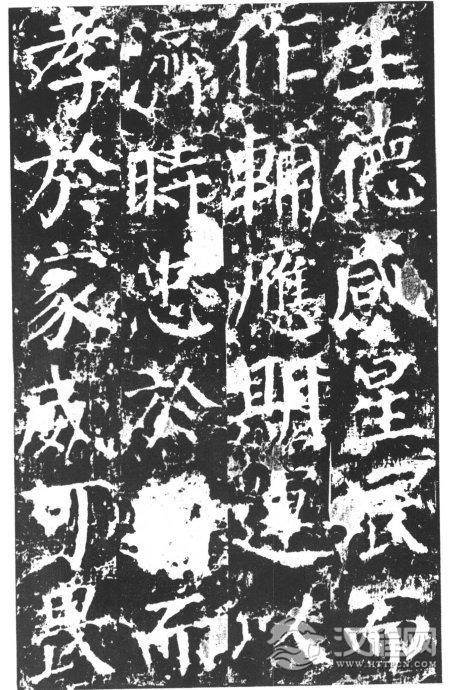 生德感星辰而
作輔應期運以
濟時忠於而
孝於家威可畏
汉程网
WWW.HTTPCN.COM